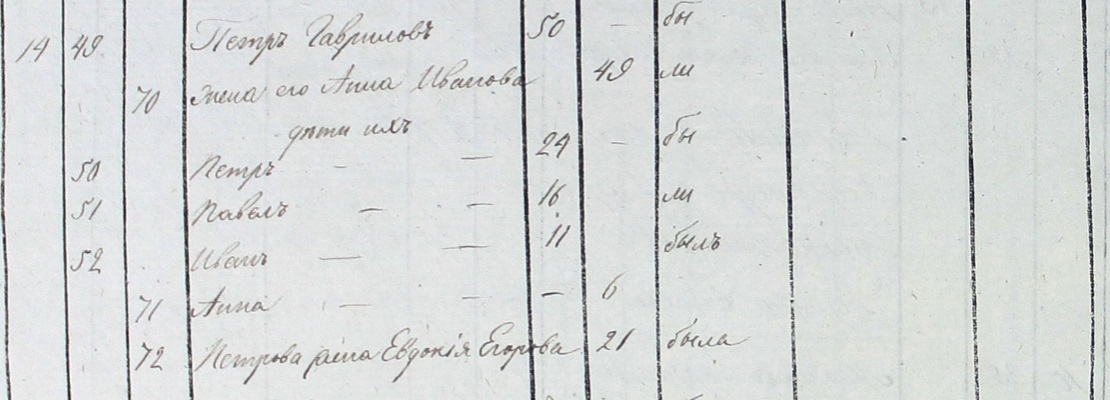 14 49 Петръ Гавриловъ 50 — бы
70 жена его Анна Иванова 49 ли
дѣти ихъ
50 Петръ — — 24 — бы
51 Павелъ — — 16 ли
52 Иванъ — — 11 былъ
71 Анна — — — 6
72 Петрова жена Евдокія Егорова 21 была